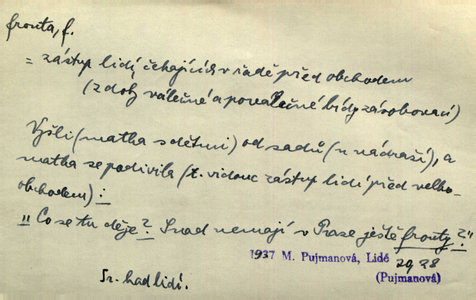 fronta, f.
= zástup lidí, čekajících v řadě před obchodem
(z doby válečné a poválečné bídy zásobovací)
Vyšli (matka s dětmi) od sadů (u nádraží), a
matka se podivila (t. vidouc zástup lidí před velko-
obchodem):
"Co se tu děje? Snad nemají v Praze ještě fronty?"
1937 M. Pujmanová, Lidé
29 28
(Pujmanová)
Sr. had lidí.